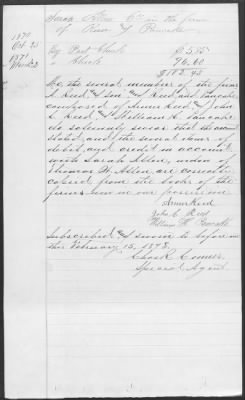 Sarah Allen in the firm
of Reed & Pancake
1870
Oct. 25 By Cash
1871
March 2 " 76.60
We, the several members of the firms
A Reed & Son and Reed and Pancake,
composed of Amur Reed & John
C. Reed & William H. Pancake
do solemnly swear that the account
stated and the several items of
debit and credit in account
with Sarah Allen, widow of
Thomas W. Allen, are correctly
copied from the books of the
firms now in our possession
Amur Reed
John C Reed
William H. Pancake
Subscribed & sworn to before me
this February 15, 1878.
Special Agent.